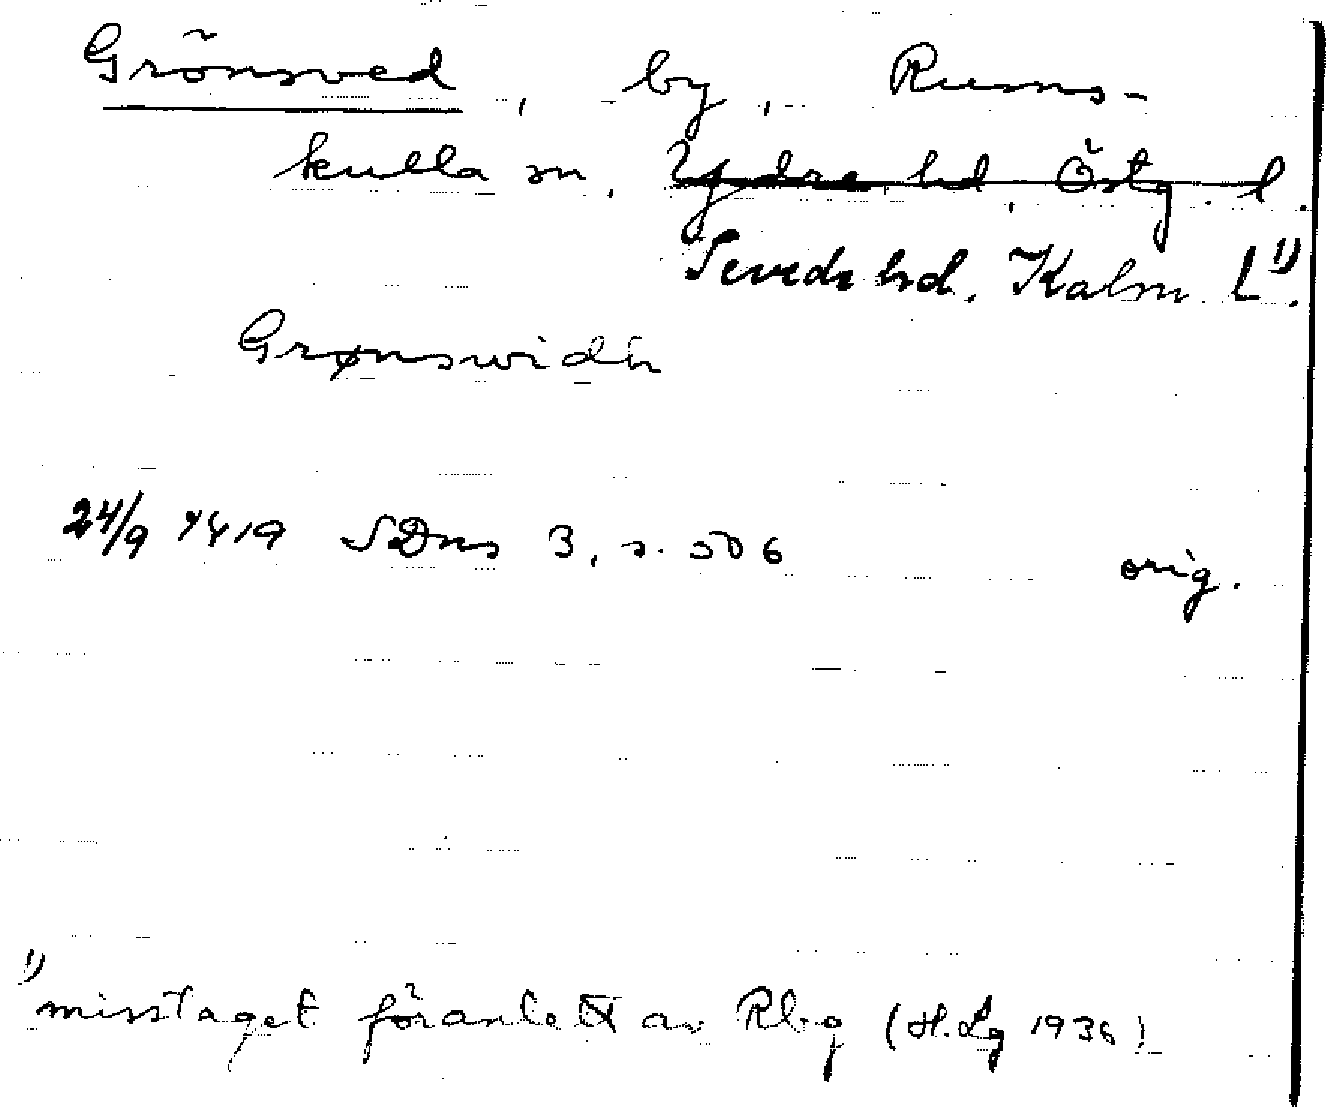 Grönsved, by, Rums-
kulla sn, Ydre hd, Östg. l.
Sevede hd, Kalm. L¹⁾.
Grønswidh
24/9 1419 SDns 3, s. 506 orig.
¹⁾ misstaget föranlett av Rbg (H. Lg 1936)